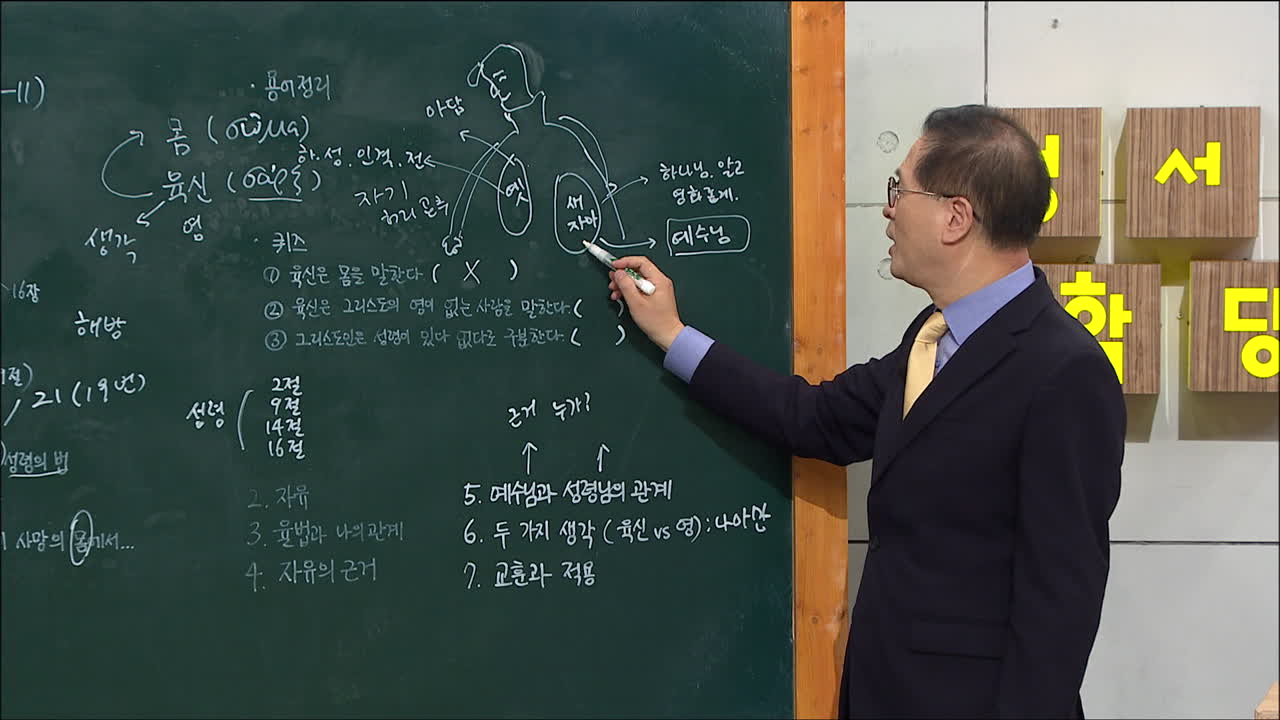 -11)
· 용어정리
몸 (σῶμα)
육신 (σάρξ)
생각
영
아담
하.성.인격.전
자기
옛
새
자아
하나님. 알고
영화롭게.
예수님
· 퀴즈
① 육신은 몸을 말한다. ( X )
② 육신은 그리스도의 영이 없는 사람을 말한다. ( )
③ 그리스도인은 성령이 있다 없다로 구분한다. ( )
16장
해방
절)
21 (19번)
성령의 법
사망의 몸에서...
성령
2절
9절
14절
16절
2. 자유
3. 율법과 나의 관계
4. 자유의 근거
근거 누가?
5. 예수님과 성령님의 관계
6. 두 가지 생각 (육신 vs 영) : 나아만
7. 교훈과 적용
성 서
학 당